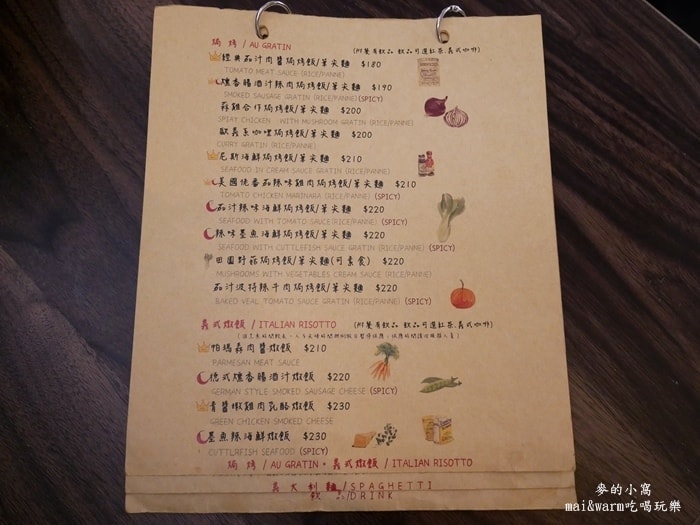 焗烤 / AU GRATIN (附餐有飲品 飲品可選紅茶.義式咖啡)
經典茄汁肉醬焗烤飯/筆尖麵 $180
TOMATO MEAT SAUCE (RICE/PANNE)
燻香腸酒汁辣肉焗烤飯/筆尖麵 $190
SMOKED SAUSAGE GRATIN (RICE/PANNE)(SPICY)
菇雞合作焗烤飯/筆尖麵 $200
JPIAY CHICKEN WITH MUSHROOM GRATIN (RICE/PANNE)
歐義系咖哩焗烤飯/筆尖麵 $200
CURRY GRATIN (RICE/PANNE)
尼斯海鮮焗烤飯/筆尖麵 $210
SEAFOOD IN CREAM SAUCE GRATIN (RICE/PANNE)
美國佬番茄辣味雞肉焗烤飯/筆尖麵 $210
TOMATO CHICKEN MARINARA (RICE/PANNE) (SPICY)
茄汁辣味海鮮焗烤飯/筆尖麵 $220
SEAFOOD WITH TOMATO SAUCE(RICE/PANNE) (SPICY)
辣味墨魚海鮮焗烤飯/筆尖麵 $220
SEAFOOD WITH CUTTLEFISH SAUCE GRATIN (RICE/PANNE) (SPICY)
田園野菇焗烤飯/筆尖麵(可素食) $220
MUSHROOMS WITH VEGETABLES CREAM SAUCE (RICE/PANNE)
茄汁波特辣牛肉焗烤飯/筆尖麵 $220
BAKED VEAL TOMATO SAUCE GRATIN (RICE/PANNE) (SPICY)
義式燉飯 / ITALIAN RISOTTO (附餐有飲品 飲品可選紅茶.義式咖啡)
帕瑪森肉醬燉飯 $210
PARMESAN MEAT SAUCE
德式燻香腸酒汁燉飯 $220
GERMAN STYLE SMOKED SAUSAGE CHEESE (SPICY)
青醬燉雞肉乳酪燉飯 $230
GREEN CHICKEN SMOKED CHEESE
墨魚辣海鮮燉飯 $230
CUTTLRFISH SEAFOOD (SPICY)
焗烤 / AU GRATIN・義式燉飯 / ITALIAN RISOTTO
義大利麵/SPAGHETTI
飲品/DRINK
麥的小窩
mai&warm吃喝玩樂